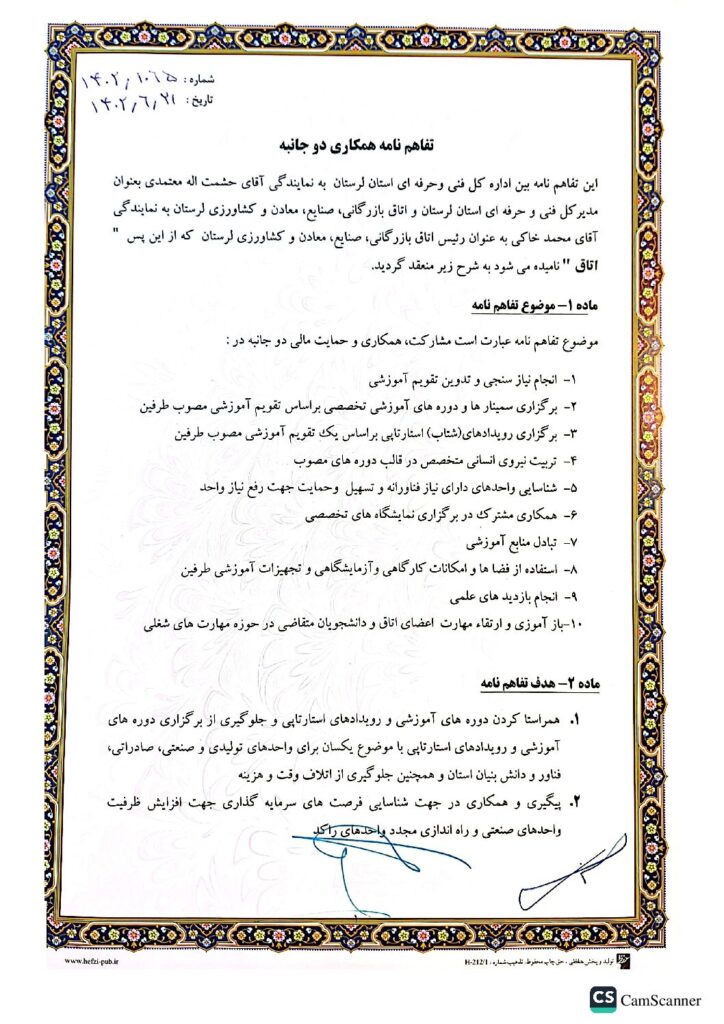 شماره : ۱۴۰۲,۱۰۶۵
تاریخ : ۱۴۰۲,۶,۲۱
تفاهم نامه همکاری دو جانبه
این تفاهم نامه بین اداره کل فنی وحرفه ای استان لرستان به نمایندگی آقای حشمت اله معتمدی بعنوان
مدیرکل فنی و حرفه ای استان لرستان و اتاق بازرگانی، صنایع، معادن و کشاورزی لرستان به نمایندگی
آقای محمد خاکی به عنوان رئیس اتاق بازرگانی، صنایع، معادن و کشاورزی لرستان که از این پس "
اتاق " نامیده می شود به شرح زیر منعقد گردید.
ماده ۱- موضوع تفاهم نامه
موضوع تفاهم نامه عبارت است مشارکت، همکاری و حمایت مالی دو جانبه در :
۱- انجام نیاز سنجی و تدوین تقویم آموزشی
۲- برگزاری سمینار ها و دوره های آموزشی تخصصی براساس تقویم آموزشی مصوب طرفین
۳- برگزاری رویدادهای(شتاب) استارتاپی براساس یک تقویم آموزشی مصوب طرفین
۴- تربیت نیروی انسانی متخصص در قالب دوره های مصوب
۵- شناسایی واحدهای دارای نیاز فناورانه و تسهیل وحمایت جهت رفع نیاز واحد
۶- همکاری مشترک در برگزاری نمایشگاه های تخصصی
۷- تبادل منابع آموزشی
۸- استفاده از فضا ها و امکانات کارگاهی وآزمایشگاهی و تجهیزات آموزشی طرفین
۹- انجام بازدید های علمی
۱۰-باز آموزی و ارتقاء مهارت اعضای اتاق و دانشجویان متقاضی در حوزه مهارت های شغلی
ماده ۲- هدف تفاهم نامه
۱. همراستا کردن دوره های آموزشی و رویدادهای استارتاپی و جلوگیری از برگزاری دوره های
آموزشی و رویدادهای استارتاپی با موضوع یکسان برای واحدهای تولیدی و صنعتی، صادراتی،
فناور و دانش بنیان استان و همچنین جلوگیری از اتلاف وقت و هزینه
۲. پیگیری و همکاری در جهت شناسایی فرصت های سرمایه گذاری جهت افزایش ظرفیت
واحدهای صنعتی و راه اندازی مجدد واحدهای راکد
تولید و پخش حفظی ، حق چاپ محفوظ. تذهیب شماره : H-212/1
www.hefzi-pub.ir
CS CamScanner